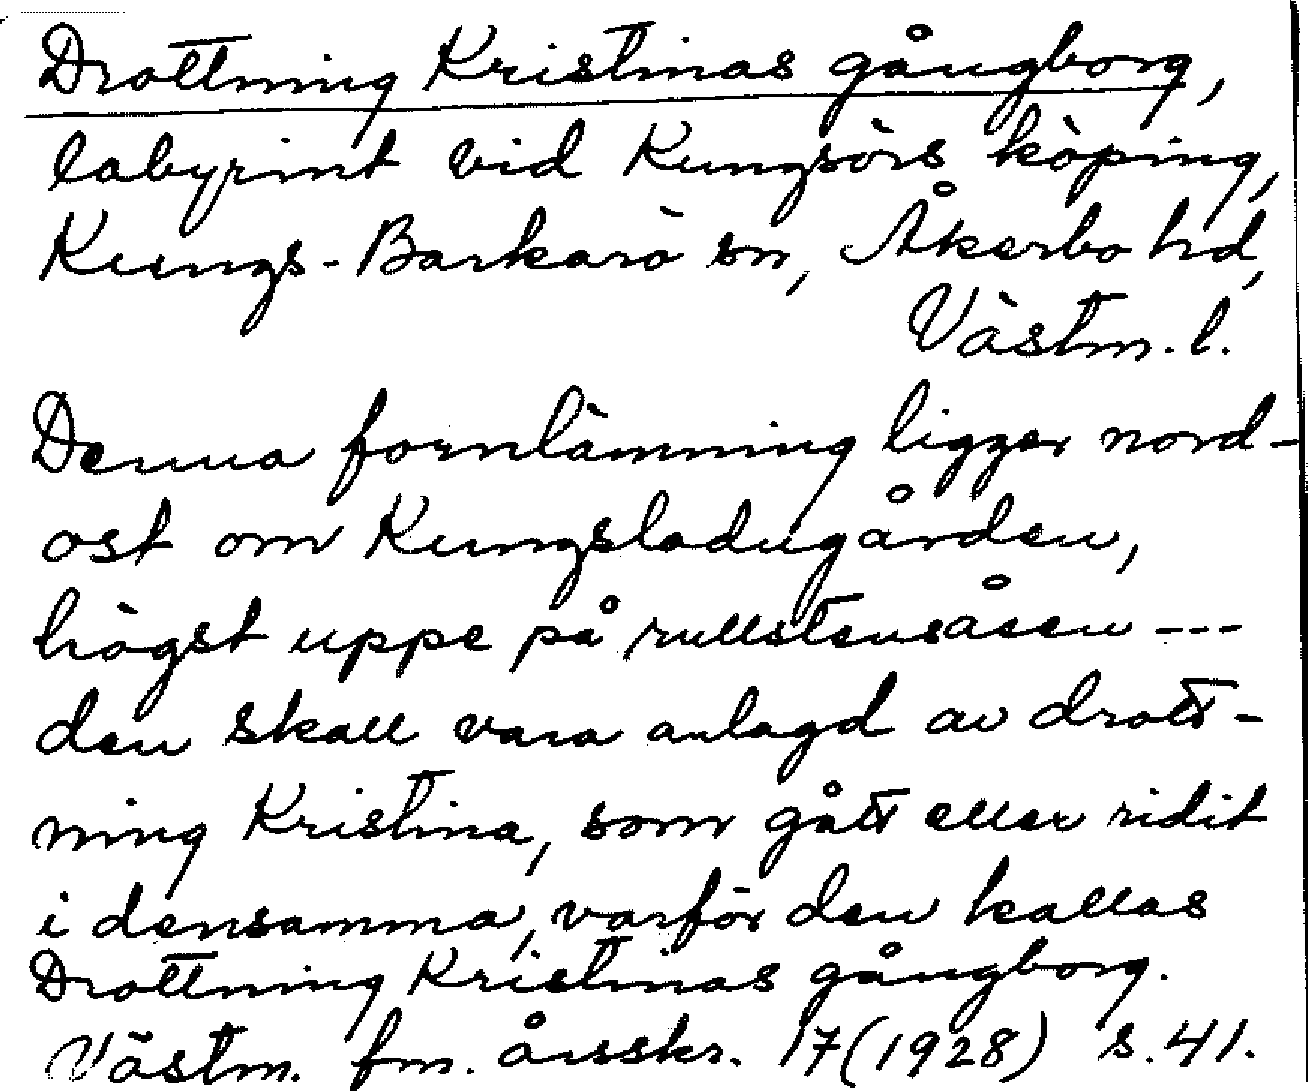 Drottning Kristinas gångborg,
labyrint vid Kungsörs köping,
Kungs-Barkarö sn, Åkerbo hd,
Västm. l.
Denna fornlämning ligger nord-
ost om Kungsladugården,
högst uppe på rullstensåsen ---
den skall vara anlagd av drott-
ning Kristina, som gått eller ridit
i densamma, varför den kallas
Drottning Kristinas gångborg.
Västm. fm. årsskr. 17(1928) s. 41.